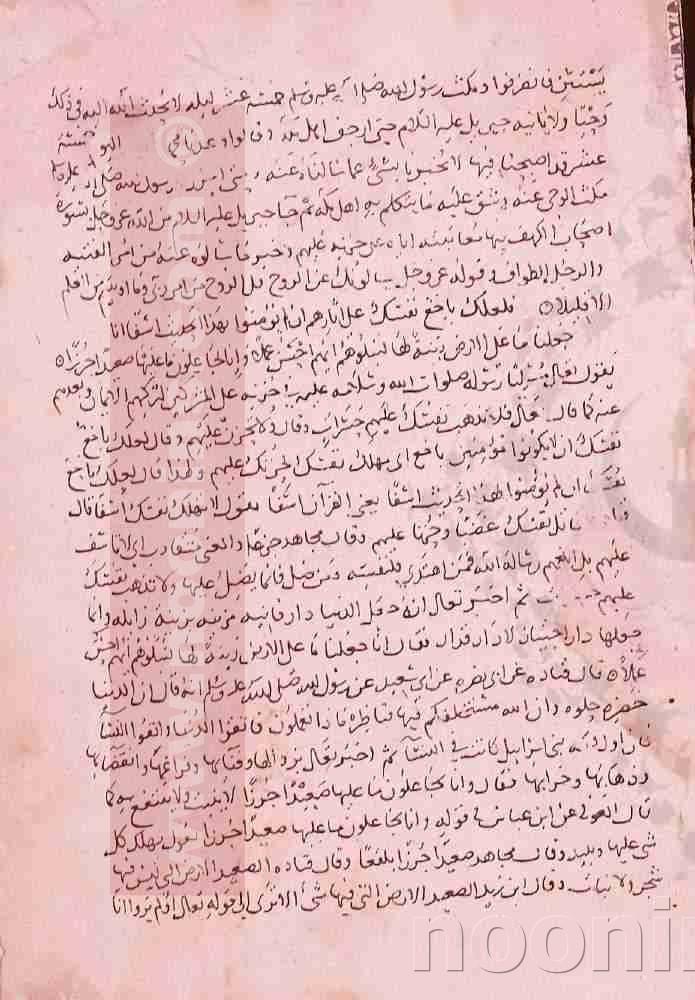 يستثن فانصرفوا ومكث رسول الله صلى الله عليه وسلم خمسة عشر ليلة لا يحدث الله اليه في ذلك
وحيا ولا ياتيه جبريل عليه السلام حتى ارجف اهل مكة وقالوا وعدنا محمد اليوم خمسة
عشر قد اصبحنا فيها لا يخبرنا بشيء عما سالناه عنه وحتى احزن رسول الله صلى الله عليه وسلم
مكث الوحي عنه وشق عليه ما يتكلم به اهل مكة ثم جاءه جبريل عليه السلام من الله عز وجل بسورة
اصحاب الكهف فيها معاتبته اياه على حزنه عليهم وخبر ما سالوه عنه من امر الفتية
والرجل الطواف وقوله عز وجل يسالونك عن الروح قل الروح من امر ربي وما اوتيتم من العلم
الا قليلا فلعلك باخع نفسك على اثارهم ان لم يؤمنوا بهذا الحديث اسفا انا
جعلنا ما على الارض زينة لها لنبلوهم ايهم احسن عملا وانا لجاعلون ما عليها صعيدا جرزا
يقول تعالى مسليا رسوله صلوات الله وسلامه عليه في حزنه على المشركين لتركهم الايمان وبعدهم
عنه كما قال فلا تذهب نفسك عليهم حسرات وقال ولا تحزن عليهم وقال لعلك باخع
نفسك ان لا يكونوا مؤمنين باخع اي مهلك نفسك لحزنك عليهم ولهذا قال لعلك باخع
نفسك ان لم يؤمنوا بهذا الحديث اسفا يعني القرآن اسفا يقول لا تهلك نفسك اسفا قال
قاتل نفسك غضبا وحزنا عليهم وقال مجاهد جزعا والمعنى متقارب اي لا تاسف
عليهم بل ابلغهم رسالة الله فمن اهتدى فلنفسه ومن ضل فانما يضل عليها ولا تذهب نفسك
عليهم ثم اخبر تعالى انه جعل الدنيا دار فانية مزينة بزينة زايلة وانما
جعلها دار اختبار لا دار قرار فقال انا جعلنا ما على الارض زينة لها لنبلوهم ايهم احسن
عملا قال قتادة عن ابي نضرة عن ابي سعيد عن رسول الله صلى الله عليه وسلم انه قال ان الدنيا
خضرة حلوة وان الله مستخلفكم فيها فناظر ماذا تعملون فاتقوا الدنيا واتقوا النساء
فان اول فتنة بني اسرائيل كانت في النساء ثم اخبر تعالى بزوالها وفنائها وفراغها وانقضائها
وذهابها وخرابها فقال وانا لجاعلون ما عليها صعيدا جرزا لا ينبت ولا ينتفع به كما
قال العوفي عن ابن عباس في قوله وانا لجاعلون ما عليها صعيدا جرزا يقول يهلك كل
شي عليها ويبيد وقال مجاهد صعيدا جرزا بلقعا وقال قتادة الصعيد الارض التي ليس فيها
شجر ولا نبات وقال ابن زيد الصعيد الارض التي ليس فيها شئ الا ترى الى قوله تعالى اولم يروا انا